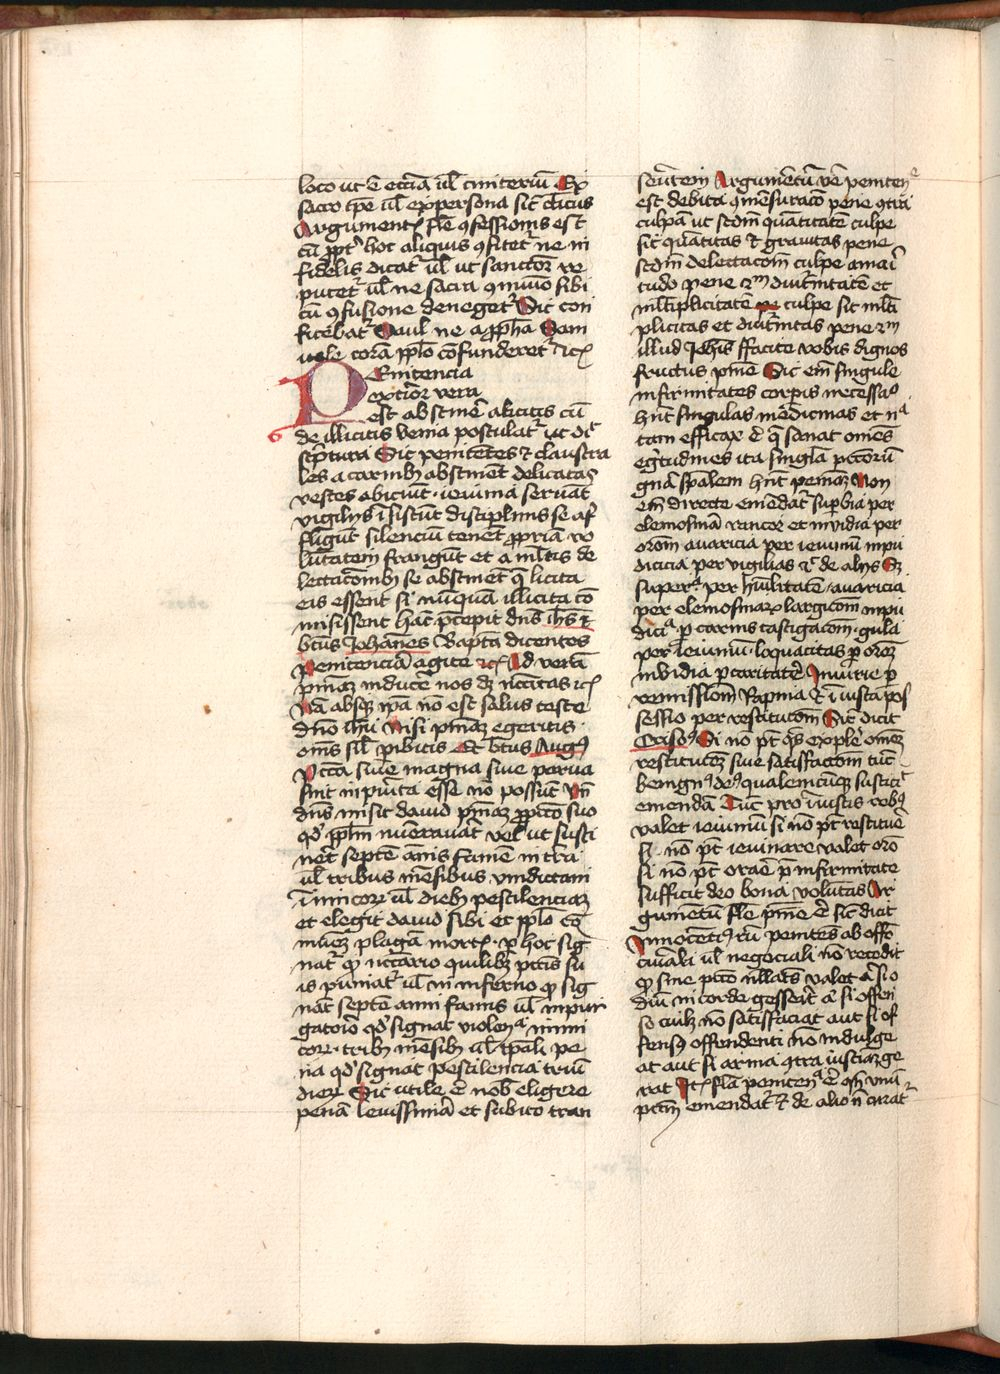 loco ut ē ecc̄ia ul̄ cimiteriū Ex
sacro tp̄e ul̄ ex persona sic̄ cl̄icus
Argumentū fl̄e ꝯfessionis est
cū ꝓpt̄ hoc aliquis ꝯfitet᷑ ne in
fidelis dicat᷑ ul̄ ut sanctior re
putet᷑ ul̄ ne sacra ꝯmunio sibi
cū ꝯfusione deneget᷑ Sic con
fitebat᷑ Saul ne a ꝓph̄a Sam
uele corā pp̄lo cōfunderet᷑ ⁊cꝫ
Penitencia
exterior vera
est abstinē a licitis cū
de illicitis venia postulat᷑ ut dic̄
scpt̄ura Sic penitētes ⁊ claustra
les a carnibꝫ abstinēt delicatas
vestes abiciūt · ieiunia servāt
vigilijs īsistūt disciplinis se af
fligūt silenciū tenēt ꝓpriā vo
lūtatem frangūt et a ml̄tis de
lectac̄onibꝫ se abstinēt q̄ licita
eis essent si nūquā illicita cō
misissent hāc p̄cepit dn̄s ih̄s ⁊
bt̄us Joh̄annes Bapt̄a dicentes
Penitenciā agite ⁊cꝫ Ad verā
pn̄iaꝫ inducē nos dꝫ nc̄citas ⁊cꝫ
Nā absqꝫ ip̄a nō est salus teste
dn̄o ih̄u Nisi pn̄iaꝫ egeritis ·
om̄s sil̄ pibitis Et bt̄us Augꝰ
Pc̄cā sive magna sive parva
sint inpūita esse nō possūt Vn̄
dn̄s misit david pn̄iaꝫ ꝓ pc̄c̄o suo
qd̓ pp̄lm nūeravāt vel ut susti
nēt septē annis famē in t̄ra
ul̄ tribus mēsibus vindictam
īimicoꝝ ul̄ diebꝫ pestilenciaꝫ
et elegit david sibi et pp̄lo cō
munēꝫ plagam mortꝭ · ꝑ hoc sig
nat᷑ ꝙ nc̄c̄ario quilibꝫ pc̄c̄is su
is puniat᷑ ul̄ in inferno ꝙ sig
nāt septē anni famis ul̄ in pur
gatorio qd̓ signat violen̄a inimi
coꝝ · tribꝫ mēsibꝫ ul̄ tp̄ali pe
na qd̓ signat pestilencia triū
dieꝝ Sic utile ē nob̄ eligere
penā levissimā et subito tran
seūtem Argumētū vē peniten̄e
est debita ꝯmēsurac̄o pene ꝯtra
culpā ut sc̄dm quātitatē culpe
sit quātitas ⁊ gravitas pene
sc̄dm delectac̄om culpe amari
tudo pene ⁊ᵐ diut̄nitatē et
ml̄tiplicitatē culpe sit ml̄ti
plicitas et diut̄nitas pene ⁊ᵐ
illud Joh̄is ffacite vobis dignos
fructus pn̄ie Sic em̄ singule
infirmitates corpis necessaꝰ
hn̄t singulas medicinas et nᵃ
tam efficax ē q̄ sanat om̄es
egritudines ita singl̄a pc̄c̄orū
gn̄a spāle᷒m hn̄t pen̄iaꝫ Non
em̄ directe emēdat᷑ superbia per
elemosinā rancor et invidia per
oro᷒m avaricia per ieiuniū inpu
dicicia per vigilias ⁊c̄ de alijs Sꝫ
supeʳᵃ per humilitatē · avaricia
per elemosinaꝝ largic̄om inpu
diciᵃ ꝑ carnis castigac̄om · gula
per ieiuniū · loquacitas ꝑ orōꝫ
invidia ꝑ caritatē Iniurie ꝑ
remissionem Rapina ⁊ īiusta pos
sessio per restitutōm Sic̄ dicit
Crisoꝰ Si nō pt̄ qs explē om̄eꝫ
restituc̄oꝫ sive satisfacōm tūc
benignꝰ deꝰ qualemcūqꝫ suscipit
emendā Tūc pro īiustis rebꝰ
valet ieiuniū si nō pt̄ restituē
si · nō pt̄ ieiunare valet orō
si nō pt̄ orare p̄ infirmitate
sufficit deo bona volūtas Ar
gumentū fl̄e pn̄ie ē sic̄ dicit
Innocentiꝰ cū penitēs ab offō
curiali ul̄ negociali nō recedit
ꝙ sine pc̄c̄o nllāts valet ᵃ si o
diū in corde gesserit ᵃ si offen
so cuilꝫ nō satisfaciat aut si of
fensꝫ offendenti nō indulge
at aut si arma ꝯtra iusticiaꝫ ge
rat Itꝫ fl̄a peniten̄a ē qn̄ unū
pc̄cm emendat᷑ ⁊ de alio n̄ curat᷑